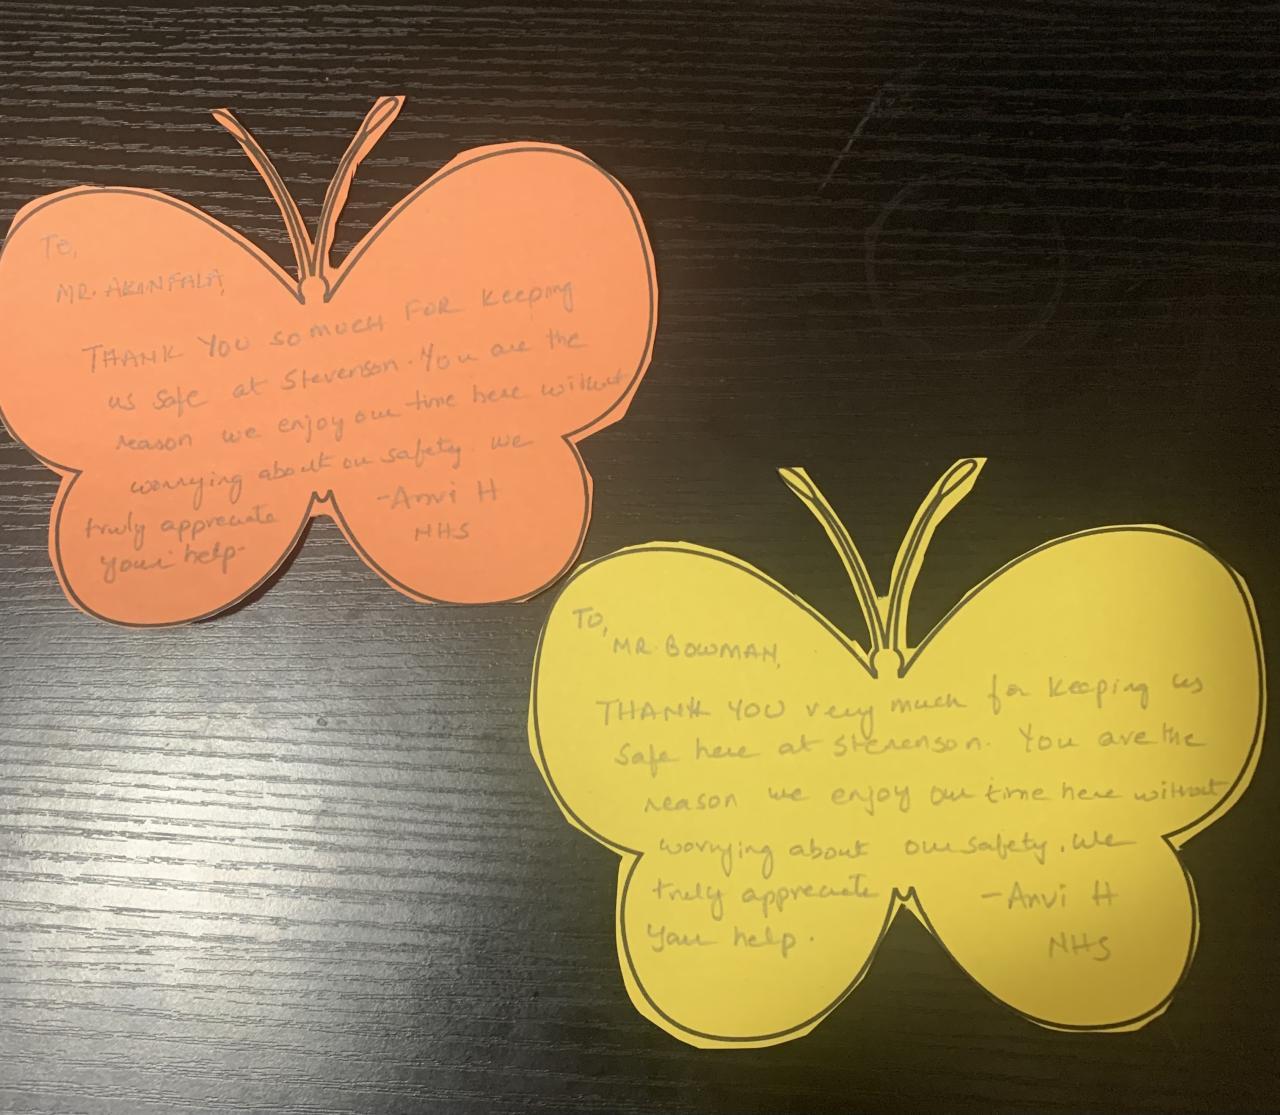 To,
MR. AKINFALA,
THANK YOU SO MUCH FOR keeping
us safe at Stevenson. You are the
reason we enjoy our time here without
worrying about our safety. we
truly appreciate
your help.
-Anvi H
NHS
To,
MR. BOWMAN,
THANK YOU very much for keeping us
safe here at Stevenson. You are the
reason we enjoy our time here without
worrying about our safety. We
truly appreciate
your help.
-Anvi H
NHS